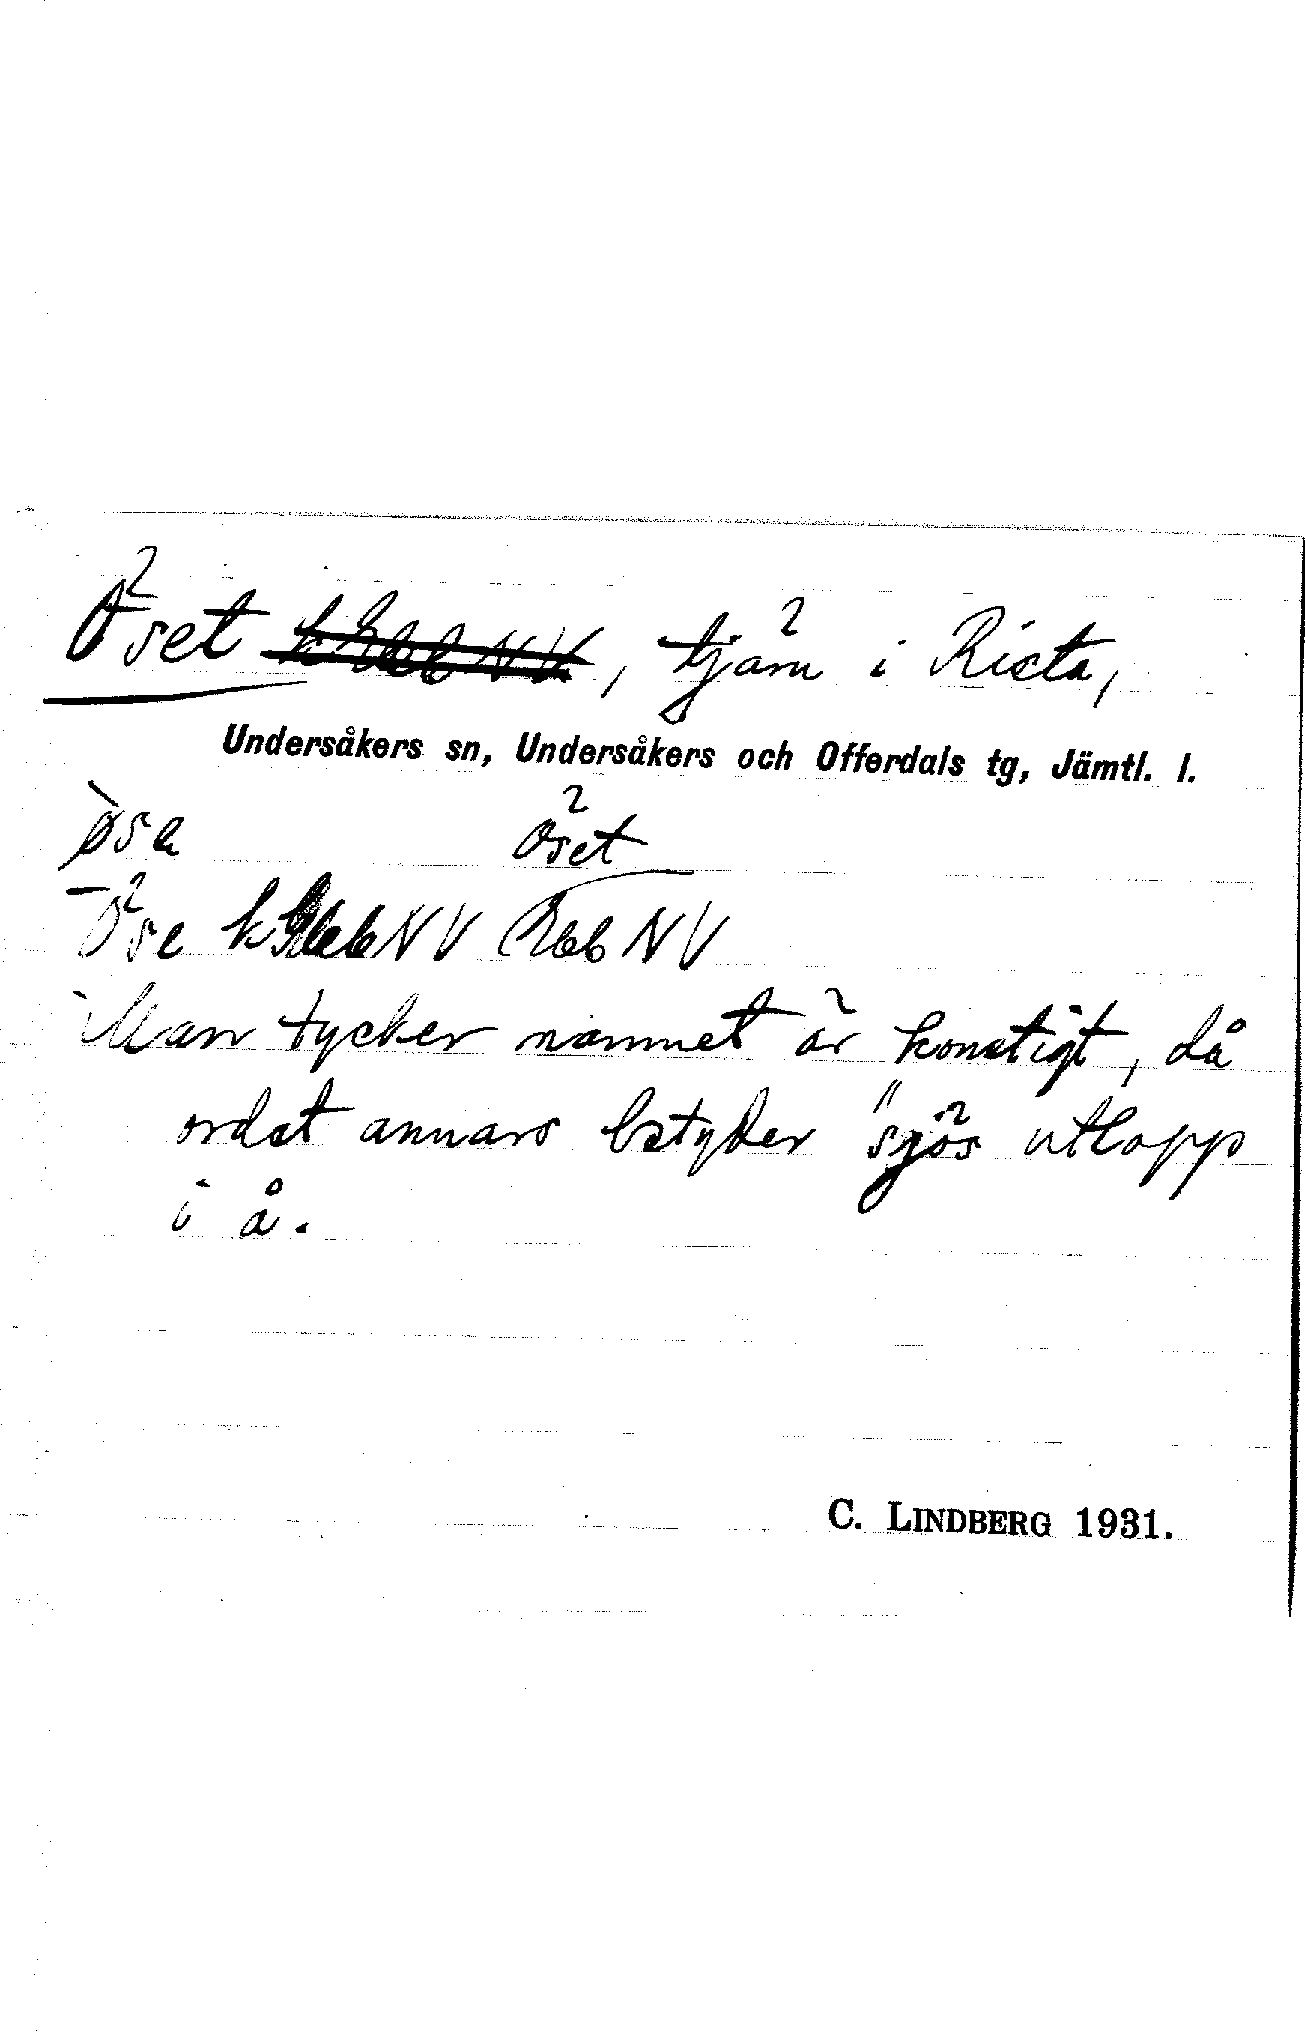 Öset k Ebl NV, tjärn i Rista,
Undersåkers sn, Undersåkers och Offerdals tg, Jämtl. l.
øsa Öset
Öse k NV Ebl NV
Man tycker namnet är konstigt, då
ordet annars betyder "sjös utlopp
i å.
C. LINDBERG 1931.